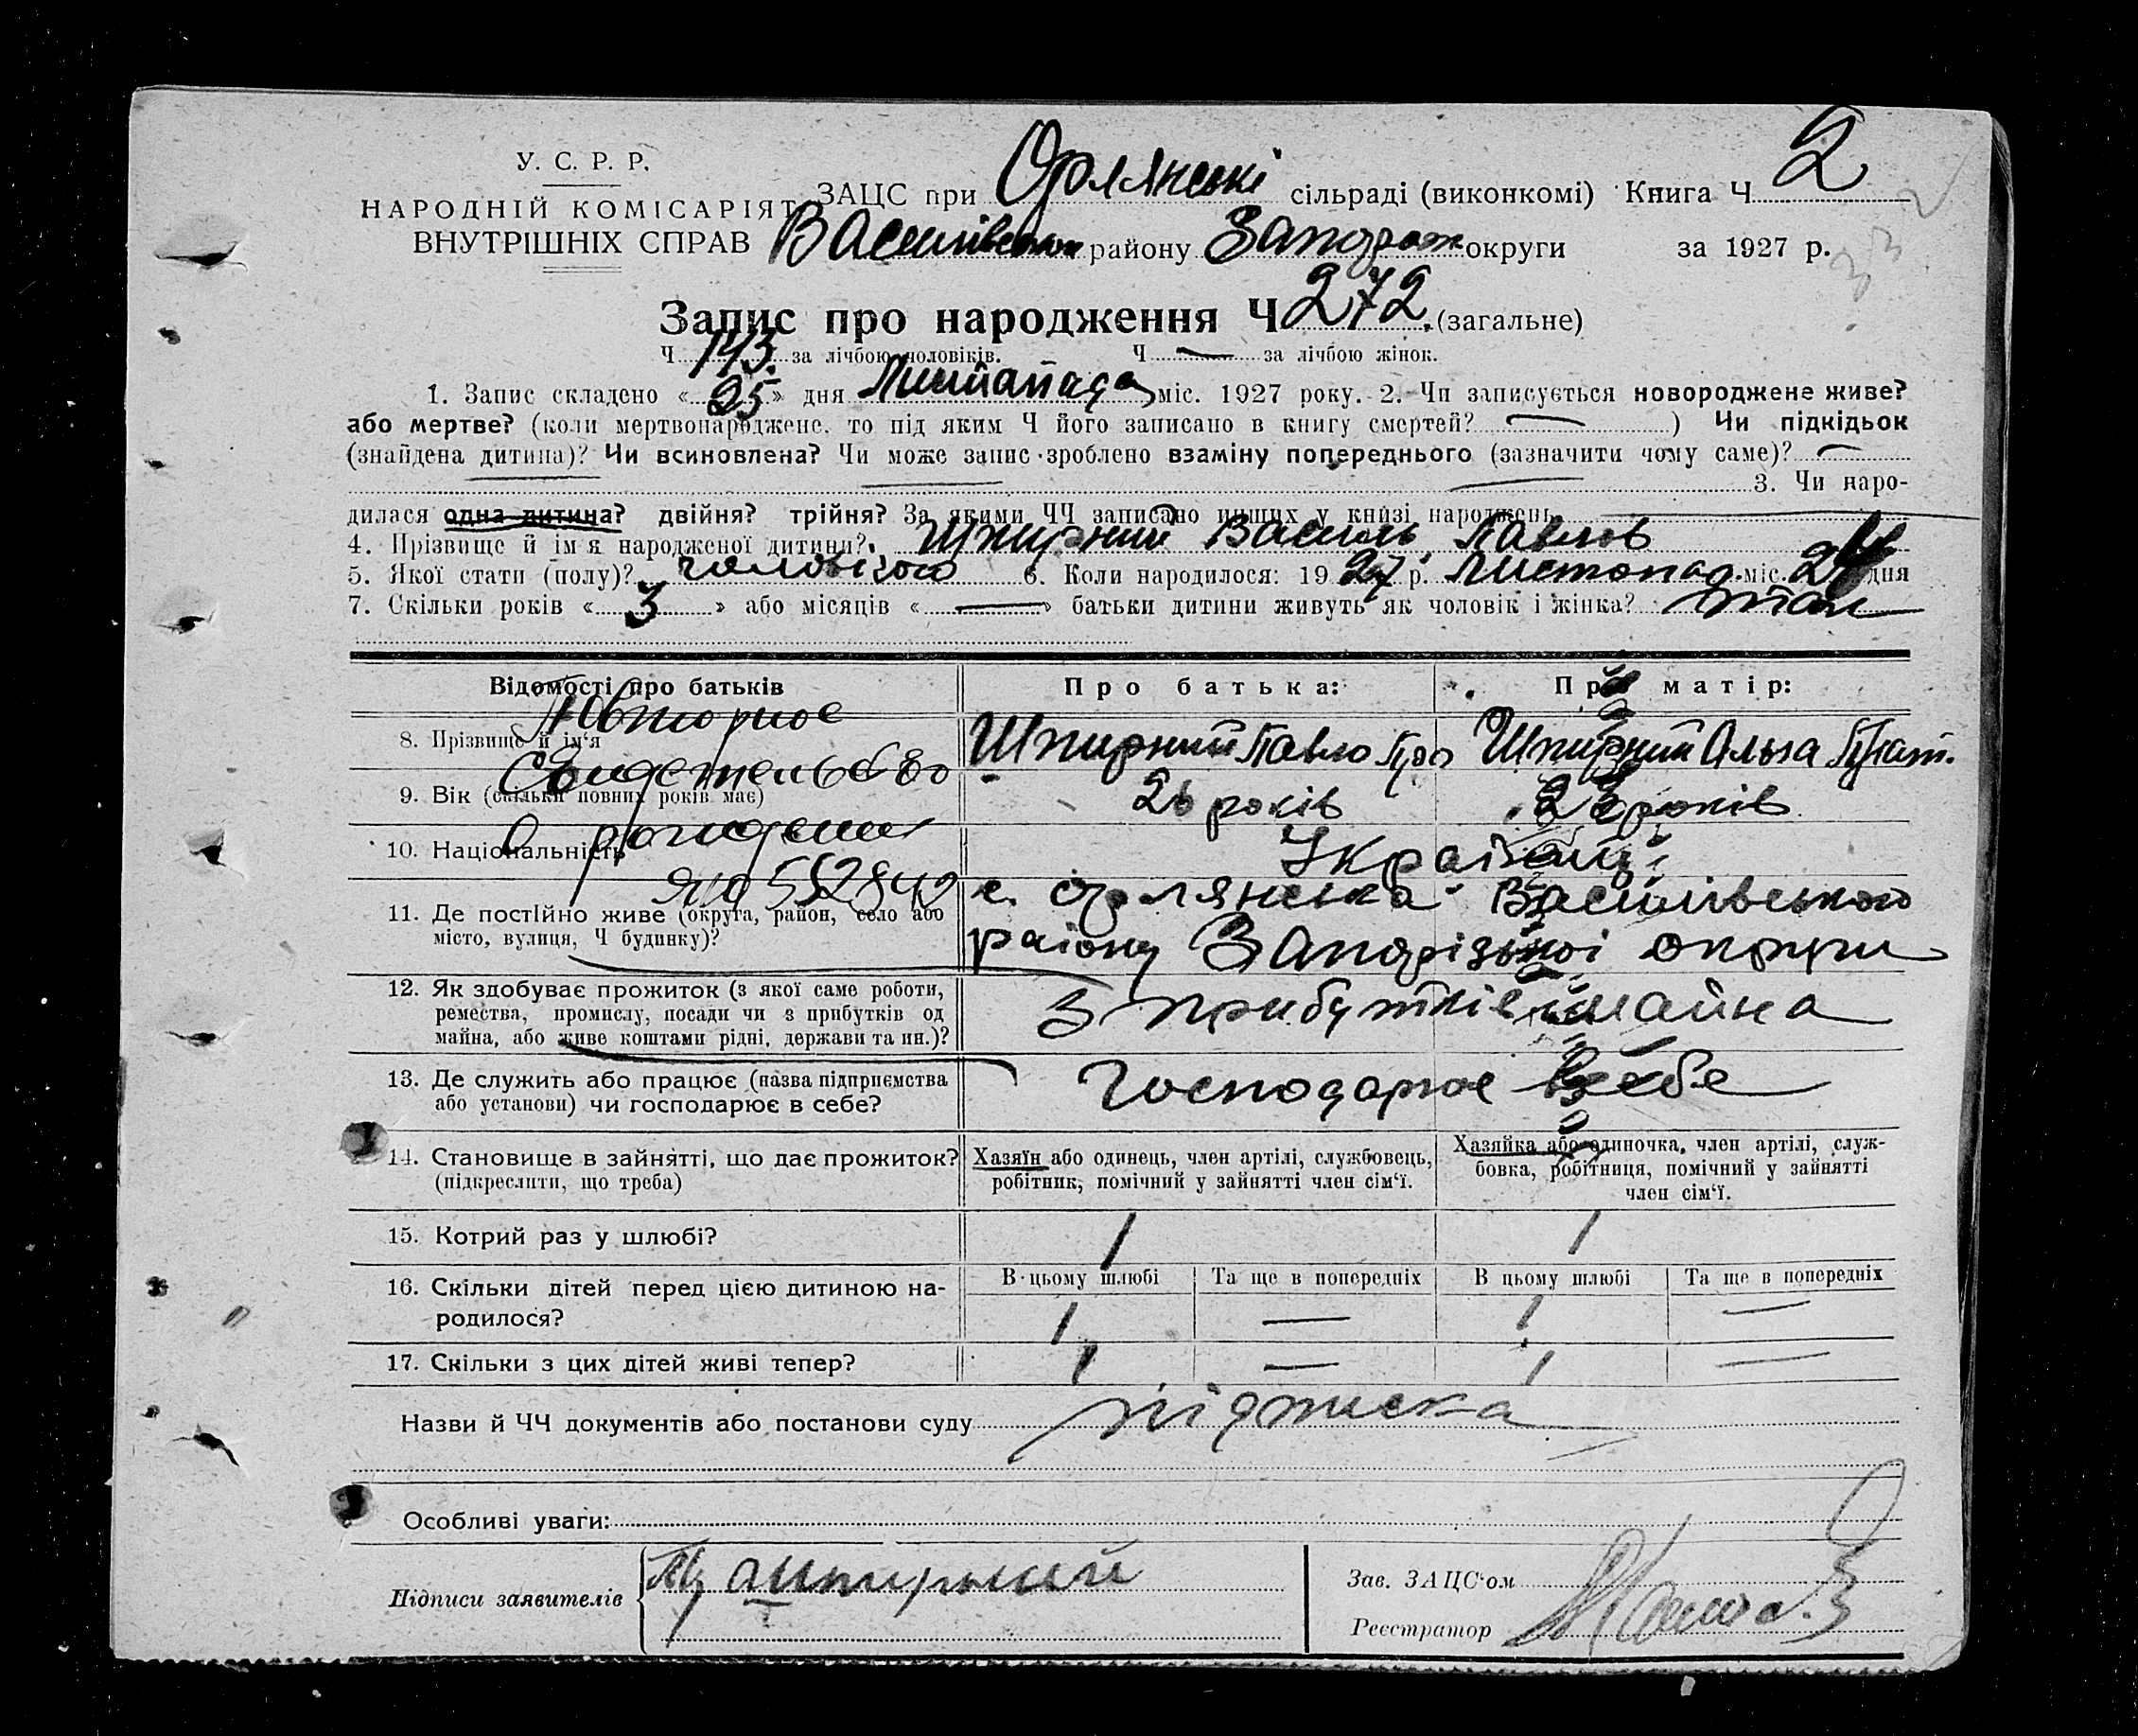 У. С. Р. Р.
НАРОДНІЙ КОМІСАРІЯТ
ВНУТРІШНІХ СПРАВ
ЗАЦС при Орлянські сільраді (виконкомі) Книга Ч 2
Василівськ району Запоріж округи за 1927 р.
Запис про народження Ч 272 (загальне)
Ч 143 за лічбою чоловіків. Ч — за лічбою жінок.
1. Запис складено «25» дня Листапада міс. 1927 року. 2. Чи записується новороджене живе?
або мертве? (коли мертвонароджене, то під яким Ч його записано в книгу смертей? — ) Чи підкідьок
(знайдена дитина)? Чи всиновлена? Чи може запис зроблено взаміну попереднього (зазначити чому саме)? —
3. Чи наро-
дилася одна дитина? двійня? трійня? За якими ЧЧ записано инших у книзі народжень
4. Прізвище й ім'я народженої дитини? Шпирний Василь Павлов
5. Якої стати (полу)? чоловічого 6. Коли народилося: 1927 р. Листопад міс. 24 дня
7. Скільки років «3» або місяців « — » батьки дитини живуть як чоловік і жінка? так
Відомості про батьків Про батька: Про матір:
Повторное
8. Прізвище й ім'я Шпирний Павло Шпирний Ольга
Свидетельство
9. Вік (скільки повних років має) 26 років 23 років
о рождении
10. Національність Українці
552842
11. Де постійно живе (округа, район, село або
місто, вулиця, Ч будинку)?
с. Орлянська Василівського
району Запорізької округи
12. Як здобуває прожиток (з якої саме роботи,
ремества, промислу, посади чи з прибутків од
майна, або живе коштами рідні, держави та ин.)?
З прибутків майна
13. Де служить або працює (назва підприємства
або установи) чи господарює в себе?
Господарює в себе
14. Становище в зайнятті, що дає прожиток?
(підкреслити, що треба)
Хазяїн або одинець, член артілі, службовець,
робітник, помічний у зайнятті член сім'ї.
Хазяйка або одиночка, член артілі, служ-
бовка, робітниця, помічний у зайнятті
член сім'ї.
15. Котрий раз у шлюбі? 1 1
16. Скільки дітей перед цією дитиною на-
родилося?
В цьому шлюбі Та ще в попередніх В цьому шлюбі Та ще в попередніх
1 — 1 —
17. Скільки з цих дітей живі тепер? 1 — 1 —
Назви й ЧЧ документів або постанови суду підписка
Особливі уваги:
Підписи заявителів
Зав. ЗАЦС'ом
Реєстратор